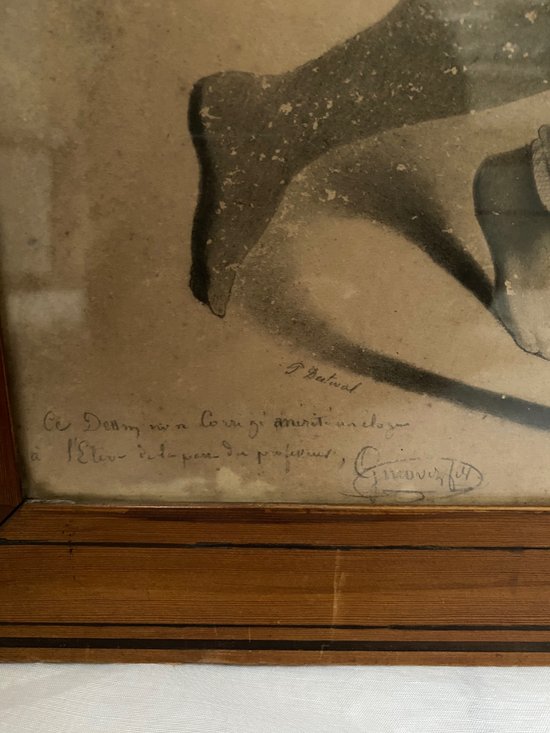 P Dutival
Ce Dessin non Corrigé a mérité un eloge
à l'Elève de la part du professeur,